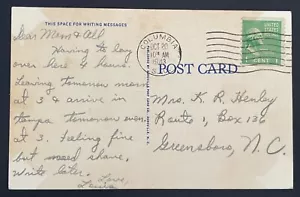 THIS SPACE FOR WRITING MESSAGES
Dear Mom & All
Having to lay
over here 4 hours.
Leaving tomorrow morn
at 3 & arrive in
Tampa tomorrow even.
at 3. Feeling fine
but need shave.
Write later.
Love,
COLUMBIA
OCT 20
AM
1943
UNITED STATES
POSTAGE
1 CENT 1
POST CARD
Mrs. K. R. Henley
Route 1, Box 136
Greensboro, N. C.